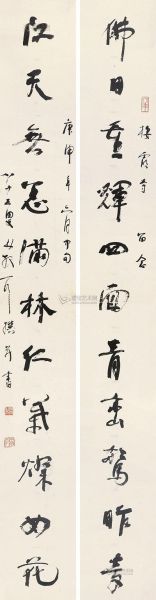 佛日重輝四面青巒驚昨夢
棲霞寺 留念
江天無恙滿林仁氣燦如花
庚申年六月中旬
叟林散耳撰并書